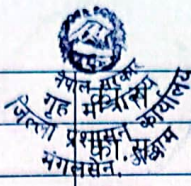 नेपाल सरकार
गृह मन्त्रालय
जिल्ला प्रशासन कार्यालय
मंगलसेन, अछाम